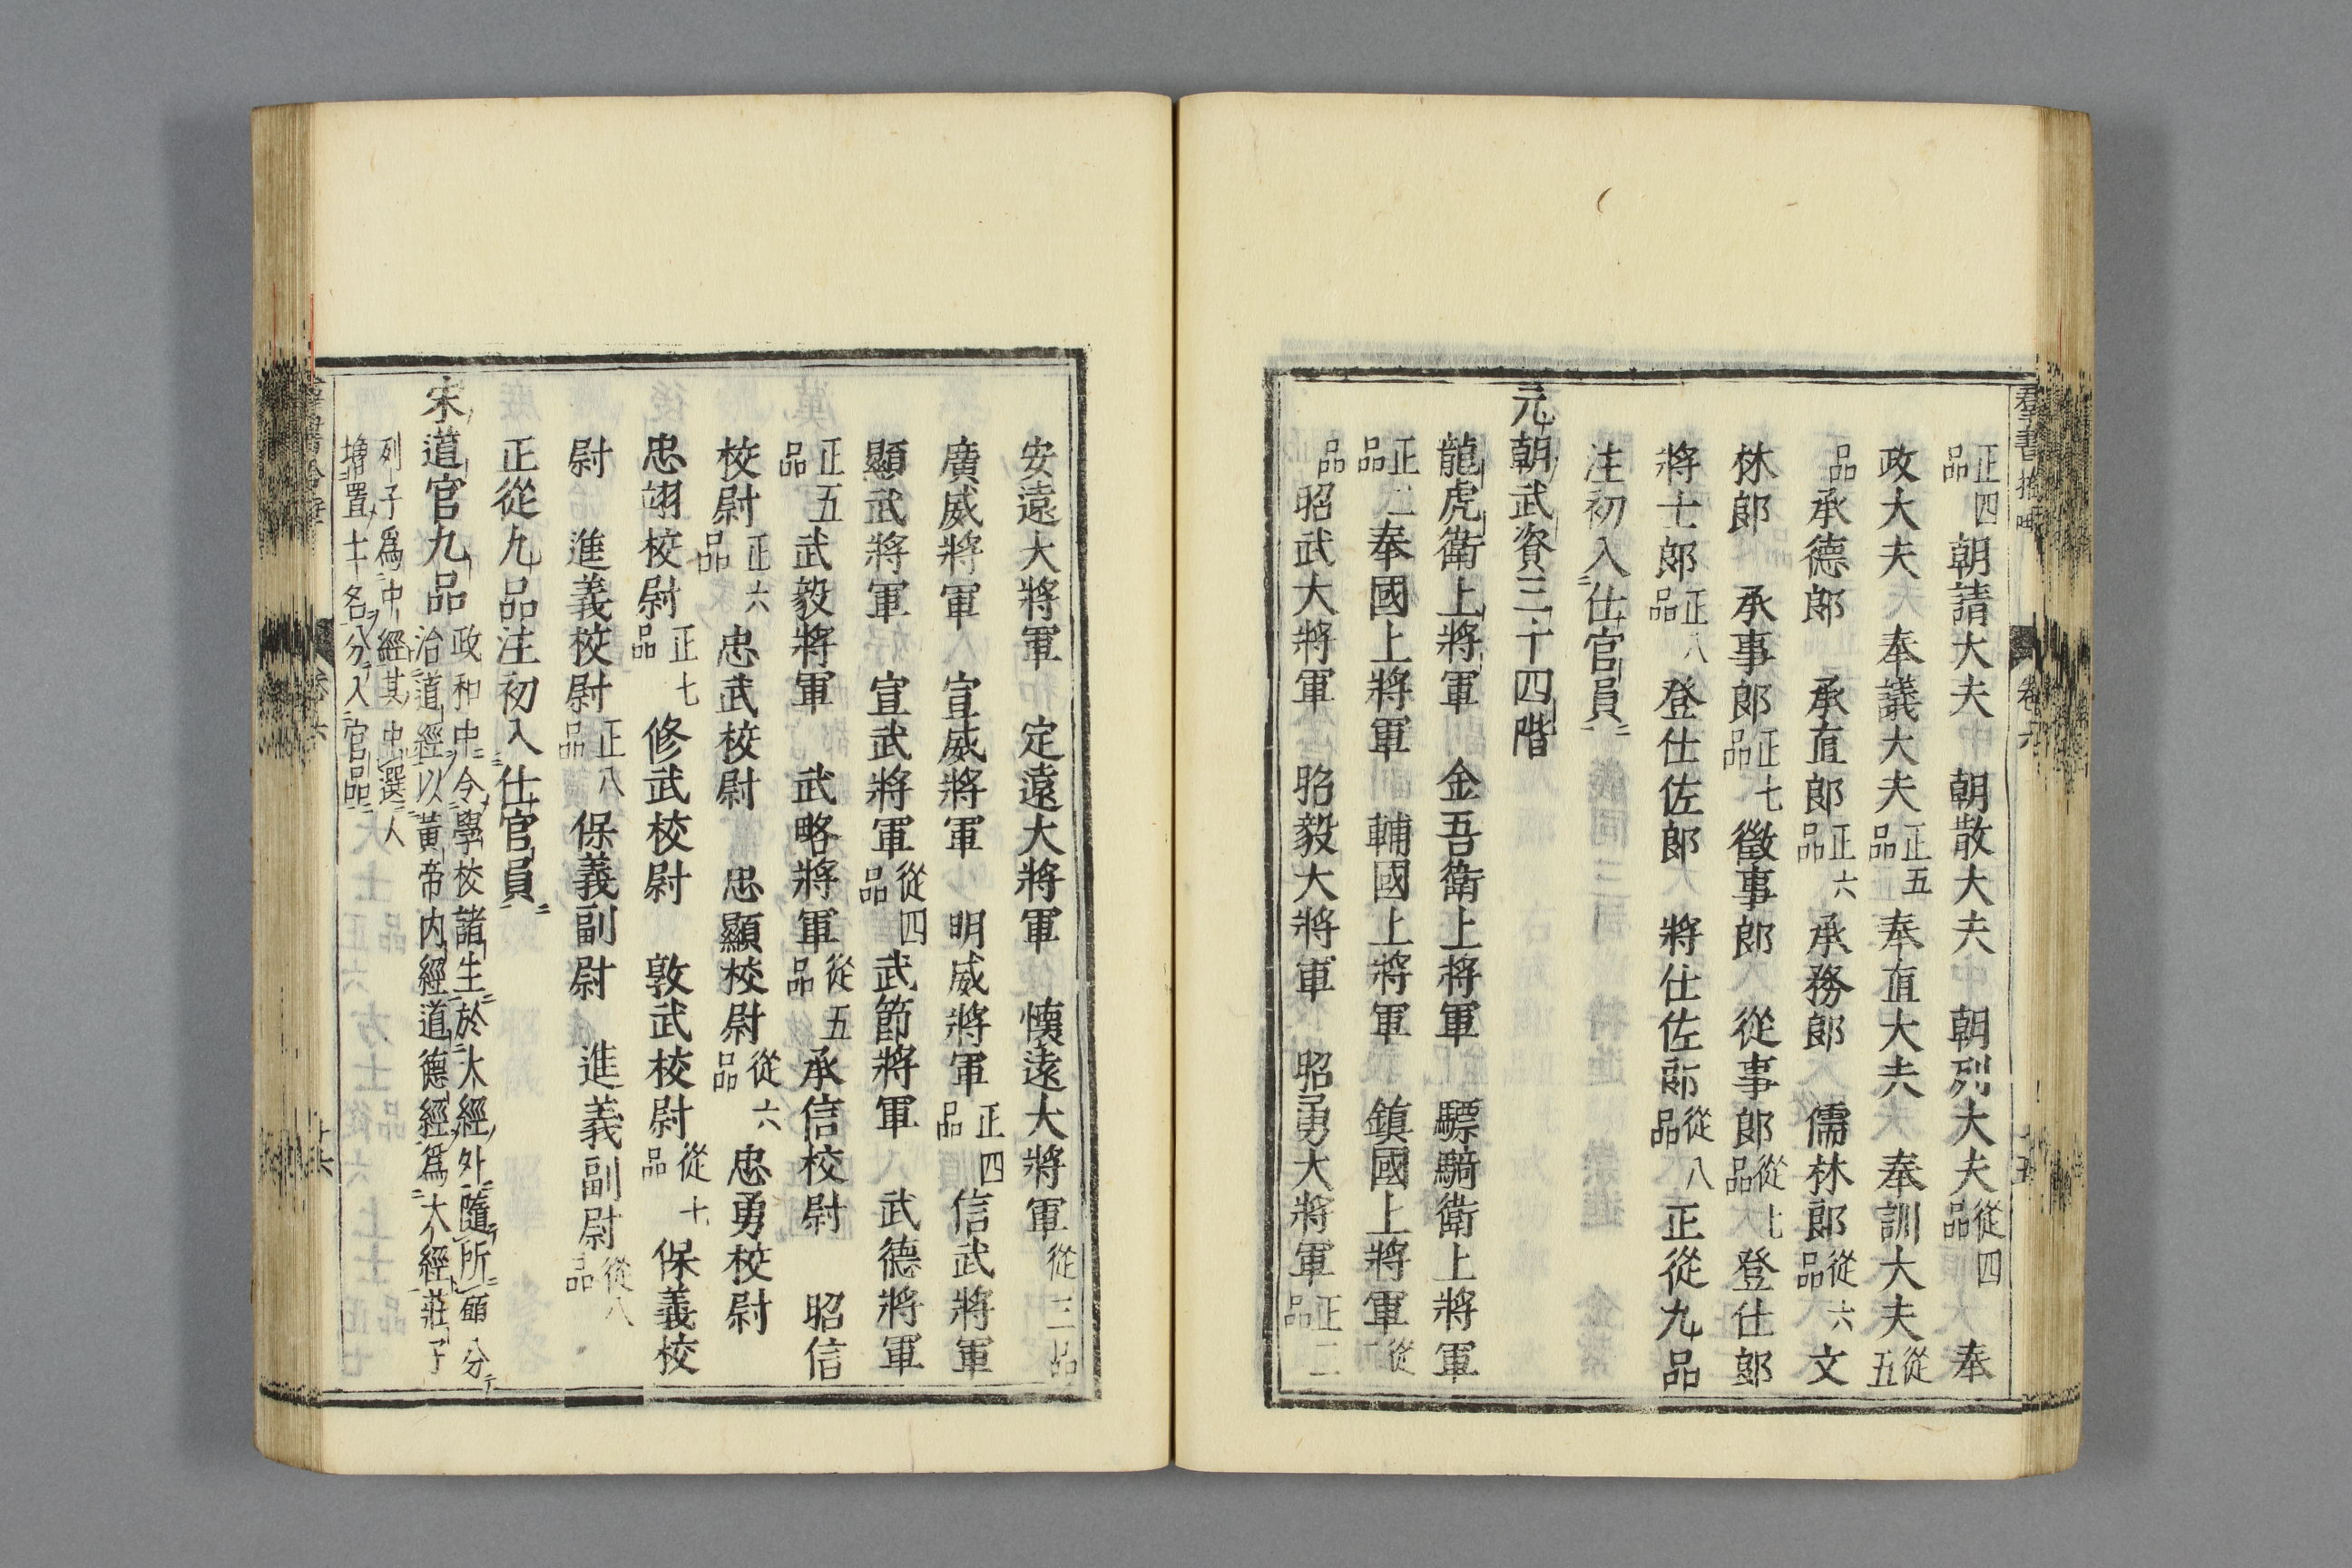 正四品朝請大夫　朝散大夫　朝列大夫從四品　奉
政大夫　奉議大夫正五品奉直大夫　奉訓大夫從五
品承德郎　承直郎正六品承務郎　儒林郎從六品文
林郎　承事郎正七品徵事郎　從事郎從七品登仕郎
將士郎正八品登仕佐郎　將仕佐郎從八品正從九品
注初入仕官員
元朝武資三十四階
龍虎衛上將軍　金吾衛上將軍　驃騎衛上將軍
正二品奉國上將軍　輔國上將軍　鎮國上將軍從二
品昭武大將軍　昭毅大將軍　昭勇大將軍正三品
安遠大將軍　定遠大將軍　懷遠大將軍從三品
廣威將軍　宣威將軍　明威將軍正四品信武將軍
顯武將軍　宣武將軍從四品武節將軍　武德將軍
正五品武毅將軍　武略將軍從五品承信校尉　昭信
校尉正六品忠武校尉　忠顯校尉從六品忠勇校尉
忠翊校尉正七品修武校尉　敦武校尉從七品保義校
尉　進義校尉正八品保義副尉　進義副尉從八品
正從九品注初入仕官員
宋道官九品政和中令學校諸生於大經外隨所願分治道經以黃帝内經道德經爲大經莊子
列子爲中經其中選人增置士名分入官品
卷六